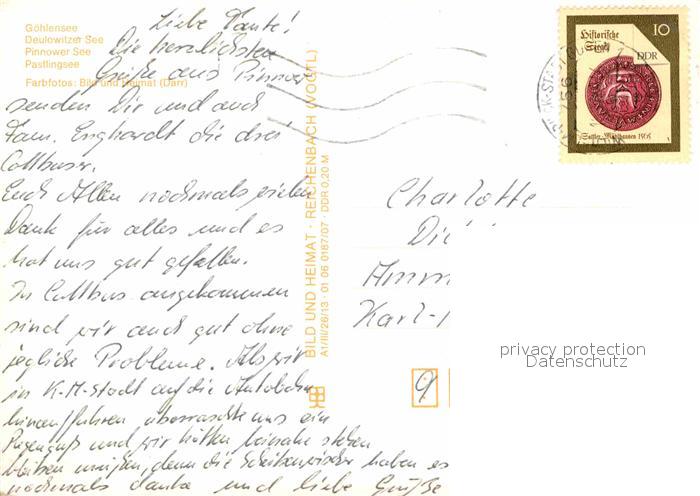 Göhlensee
Deulowitzer See
Pinnower See
Pastlingsee
Farbfotos: Bild und Heimat (Darr)
Liebe Tante!
Die herzlichsten
Grüße aus Pinnow
senden Dir und auch
Fam. Enghardt die drei
Cottbuser.
Euch Allen nochmals vielen
Dank für alles und es
hat uns gut gefallen.
In Cottbus angekommen
sind wir auch gut ohne
jegliche Probleme. Als wir
in K.-M.-Stadt auf die Autobahn
hinauffuhren überraschte uns ein
Regenguß und wir hätten beinahe stehen
bleiben müssen, denn die Scheibenwischer haben es
nochmals danke und liebe Grüße
BILD UND HEIMAT · REICHENBACH (VOGTL)
A1/III/26/13 · 01 06 0187/07 · DDR 0,20 M
Historische
Siegel
10
DDR
Sattler, Mühlhausen 1565
Charlotte
Die
Amm
Karl-
9
privacy protection
Datenschutz